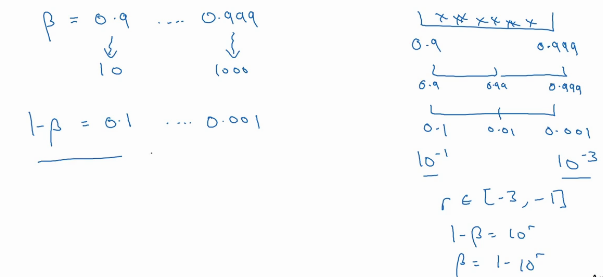 β = 0.9 .... 0.999
10 1000
1-β = 0.1 .... 0.001
0.9 0.999
0.9 0.99 0.999
0.1 0.01 0.001
10⁻¹ 10⁻³
r ∈ [-3, -1]
1-β = 10ʳ
β = 1-10ʳ